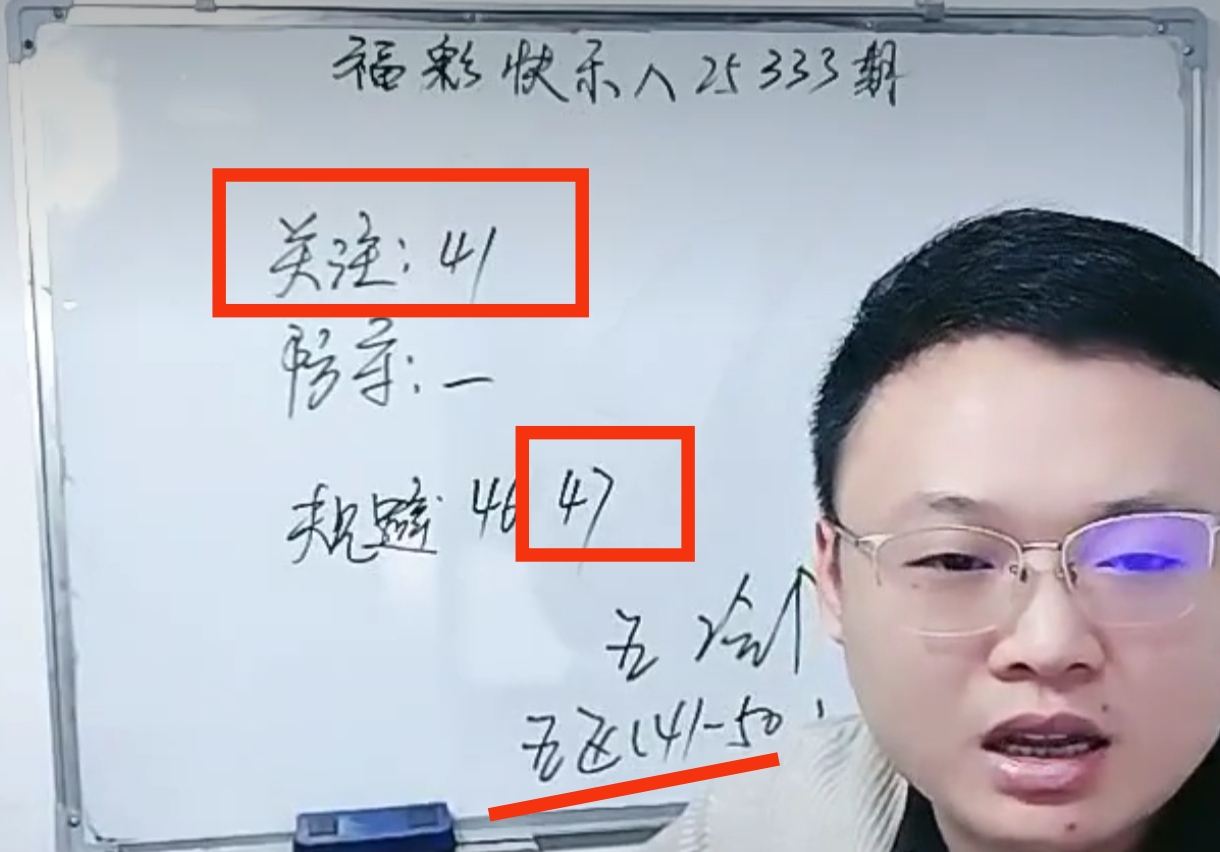 福彩快乐八25333期
关注:41
防守:一
规避 46 47
五 冷↑
五区(41-50